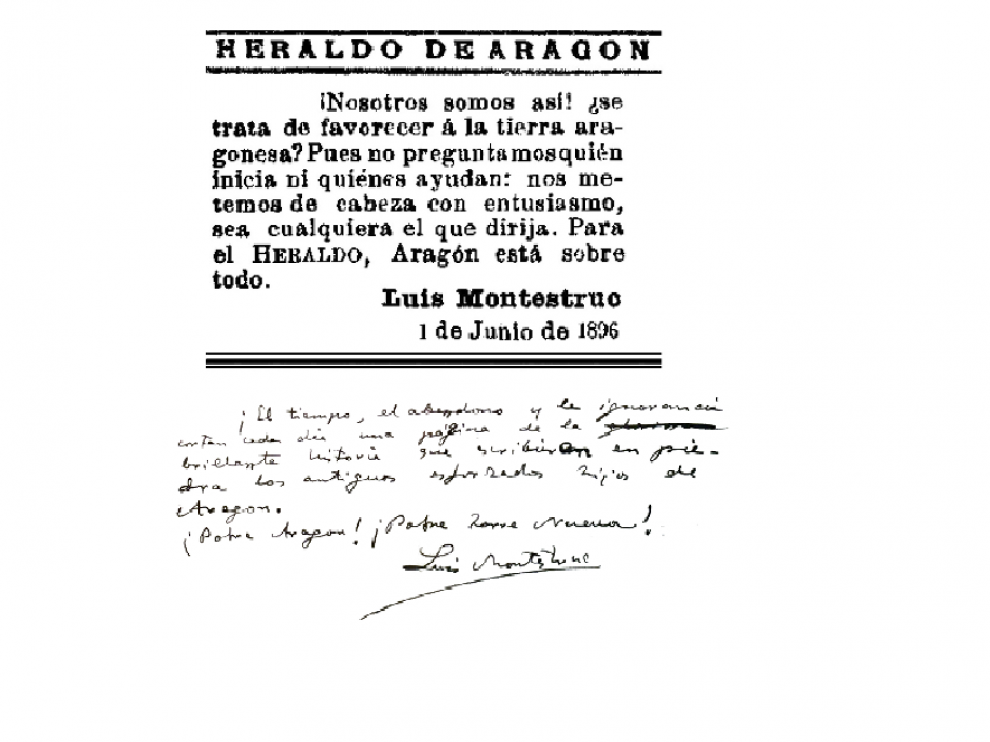 HERALDO DE ARAGON
¡Nosotros somos así! ¿se
trata de favorecer á la tierra ara-
gonesa? Pues no preguntamos quién
inicia ni quiénes ayudan: nos me-
temos de cabeza con entusiasmo,
sea cualquiera el que dirija. Para
el HERALDO, Aragón está sobre
todo.
Luis Montestruo
1 de Junio de 1896
¡El tiempo, el abandono y la ignorancia
cortan cada dia una página de la
brillante historia que escribieron en pie-
dra los antiguos esforzados hijos de
Aragon.
¡Pobre Aragon! ¡Pobre Torre Nueva!
Luis Montestruc